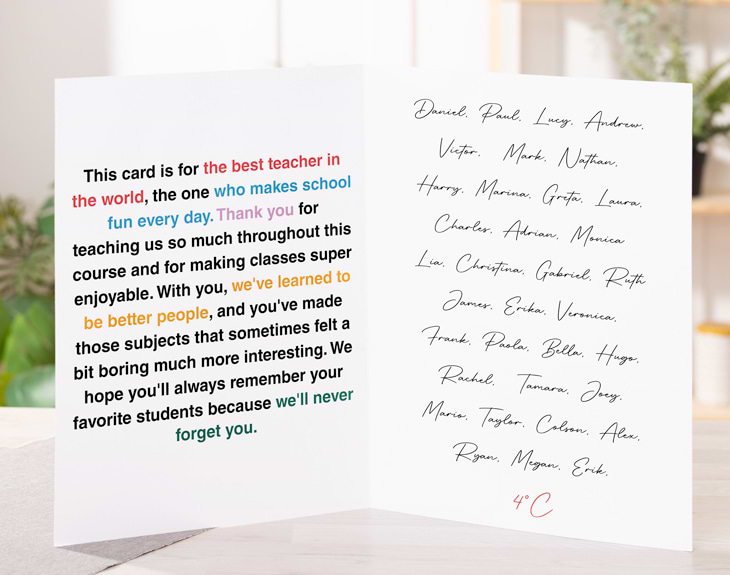 This card is for the best teacher in
the world, the one who makes school
fun every day. Thank you for
teaching us so much throughout this
course and for making classes super
enjoyable. With you, we've learned to
be better people, and you've made
those subjects that sometimes felt a
bit boring much more interesting. We
hope you'll always remember your
favorite students because we'll never
forget you.
Daniel, Paul, Lucy, Andrew,
Victor, Mark, Nathan,
Harry, Marina, Greta, Laura,
Charles, Adrian, Monica
Lia, Christina, Gabriel, Ruth
James, Erika, Veronica,
Frank, Paola, Bella, Hugo,
Rachel, Tamara, Joey,
Mario, Taylor, Colson, Alex,
Ryan, Megan, Erik,
4°C